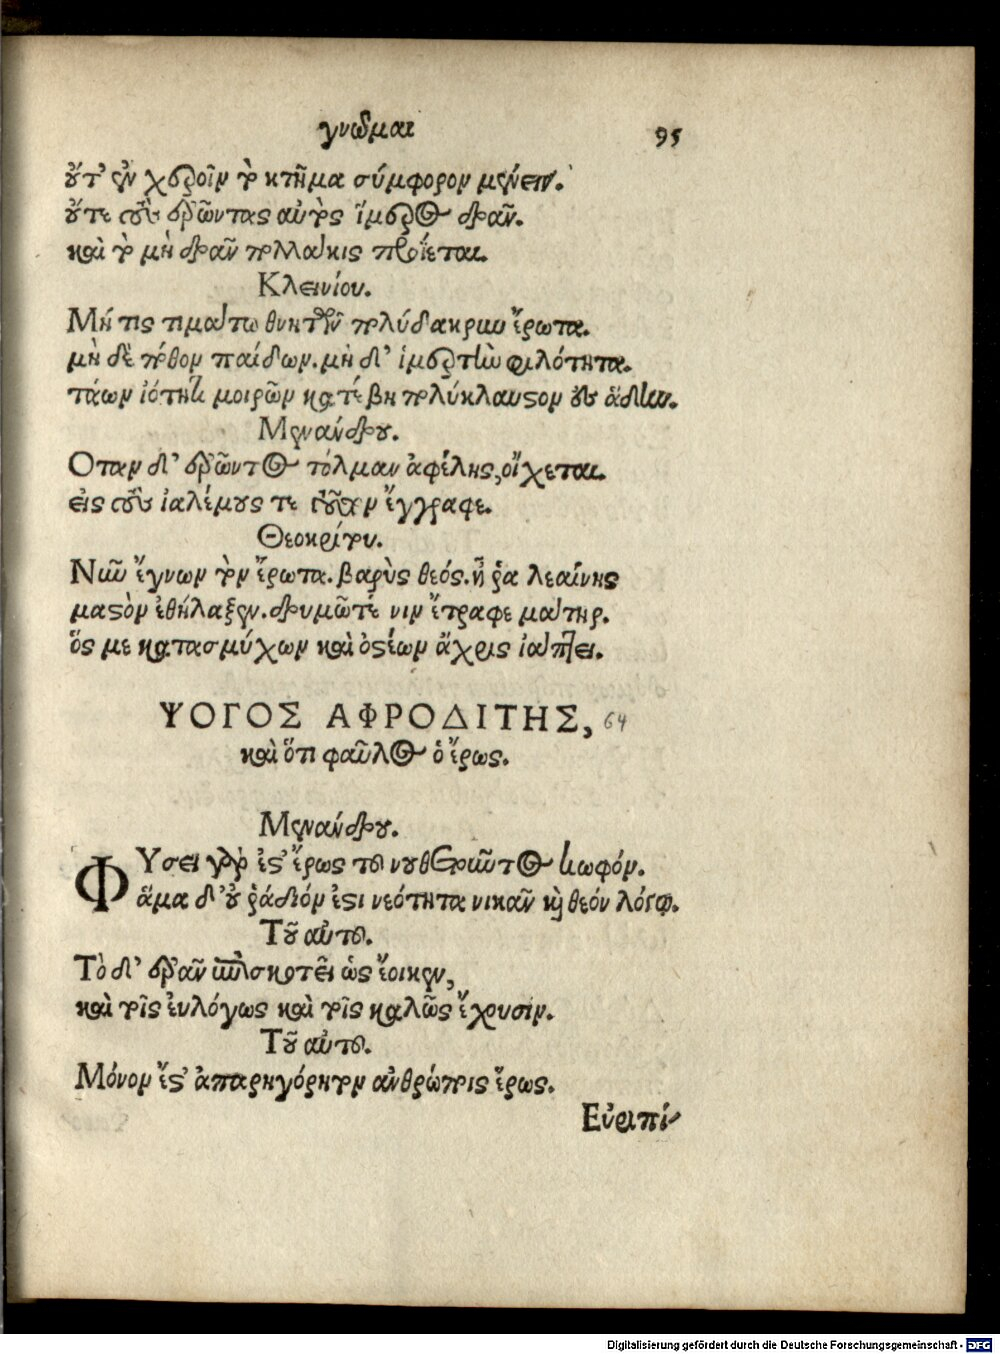 γνῶμαι 95
οὔτ' ἐν χεροῖν τὸ κτῆμα σύμφορον μένειν.
οὔτε τοὺς ἐρῶντας αὐτὸς ἵμερος δρᾶν.
καὶ τὸ μὴ δρᾶν πολλάκις προΐεται.
Κλεινίου.
Μή τις τιμάτω θνητῶν πολύδακρυν ἔρωτα.
μὴ δὲ πόθον παίδων. μὴ δ' ἱμερτὴν φιλότητα.
τάων ἰότητι μοιρῶν κατέβη πολύκλαυστον ἐς ἅδην.
Μενάνδρου.
Οταν δ' ἐρῶντος τόλμαν ἀφέλῃς, οἴχεται.
εἰς τοὺς ἰαλέμους τε τοῦτον ἔγγραφε.
Θεοκρίτου.
Νῦν ἔγνων τὸν ἔρωτα. βαρὺς θεός. ἦ ῥα λεαίνης
μαστὸν ἐθήλαξεν. δρυμῶτέ νιν ἔτραφε μάτηρ.
ὅς με κατασμύχων καὶ ὀστέων ἄχρις ἰάπτει.
ΨΟΓΟΣ ΑΦΡΟΔΙΤΗΣ, 64
καὶ ὅτι φαῦλος ὁ ἔρως.
Μενάνδρου.
ΦΥσει γάρ ἐστ' ἔρως τοῦ νουθετοῦντος κωφόν.
ἅμα δ' οὐ ῥάδιόν ἐστι νεότητα νικᾶν καὶ θεόν λόγῳ.
Τοῦ αὐτοῦ.
Τὸ δ' ἐρᾶν ἐπισκοτεῖ ὡς ἔοικεν,
καὶ τοῖς εὐλόγως καὶ τοῖς καλῶς ἔχουσιν.
Τοῦ αὐτοῦ.
Μόνον ἔστ' ἀπαρηγόρητον ἀνθρώποις ἔρως.
Εὐριπί-
Digitalisierung gefördert durch die Deutsche Forschungsgemeinschaft - DFG